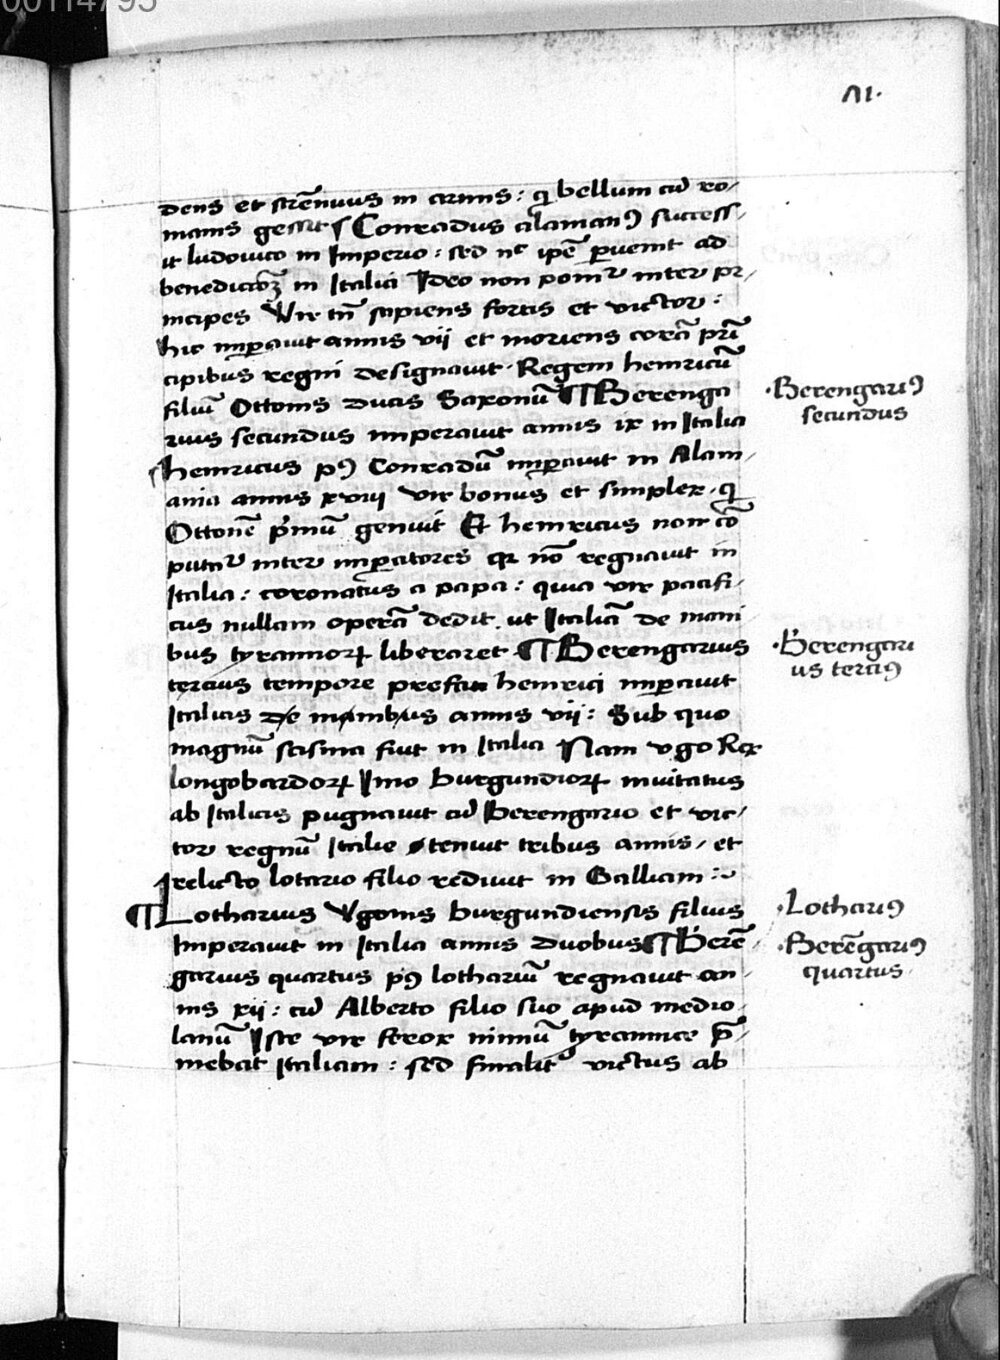 00114795
VI.
dens et strēnuus in armis : q̄ bellum cū ro-
manis gessit Conradus alamanꝰ success-
it ludovico in Imperio : sed nᶜ ipē ꝑvenit ad
benedictōꝫ in Italia Ideo non ponitᷣ inter pr-
incipes Vir tn̄ sapiens fortis et victor :
hic imꝑavit annis vii et moriens corā prī
cipibus regni designavit . Regem henricū
filiū Ottonis ducis Saxonū ¶ Berenga
rius secundus imperavit annis ix in Italia
henricus pꝰ Conradū imꝑavit in Alam-
ania annis xviii vir bonus et simplex . q̄
Ottonē p̄mū genuit Et henricus non cō
putatᷣ inter imꝑatores qꝛ nō regnavit in
Italia : coronatus a papa : quia vir pacifi-
cus nullam operā dedit . ut Italiā de mani
bus tyrannoꝝ liberaret ¶ Berengarius
tercius tempore prefati henrici imꝑavit
Italicis de manibus annis vii : Sub quo
magnū scisma fuit in Italia Nam vgo Rex
longobardoꝝ Imo burgundioꝝ invitatus
ab Italicis pugnavit cū Berengario et vic-
tor regnū Italie tenuit tribus annis , et
relicto lotario filio rediuit in Galliam :
¶ Lotharius Vgonis burgundiensis filius
Imperavit in Italia annis duobus ¶ Berē-
garius quartus pꝰ lothariū regnavit an-
nis xii : cū Alberto filio suo apud medio-
lanū Iste vir ferox nimiū tyrannice p̄-
mebat Italiam : sed finalitᷣ victus ab
. Berengariꝰ
secundus
. Berengari
us terciꝰ
. Lothariꝰ
. Berēgariꝰ
quartus .